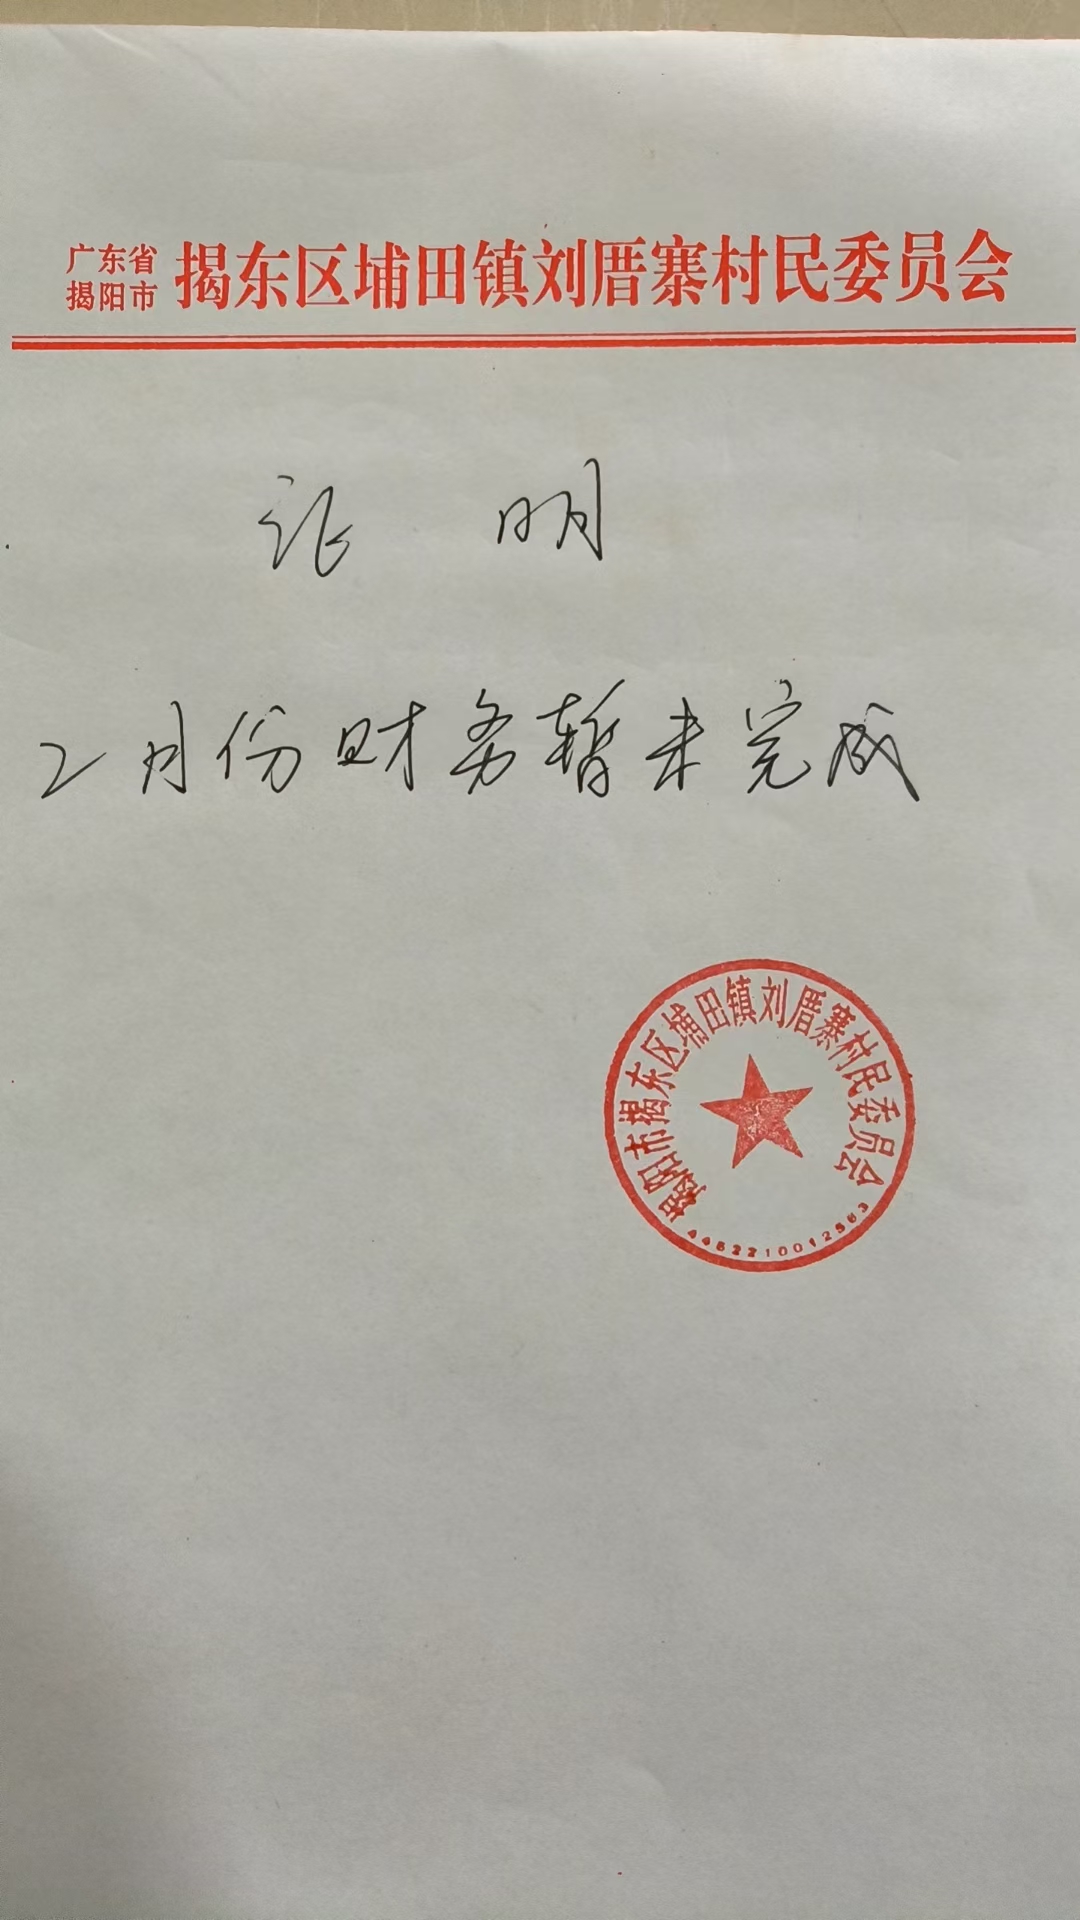 广东省
揭阳市
揭东区埔田镇刘厝寨村民委员会
证 明
2月份财务暂未完成
揭阳市揭东区埔田镇刘厝寨村民委员会
4452210012563